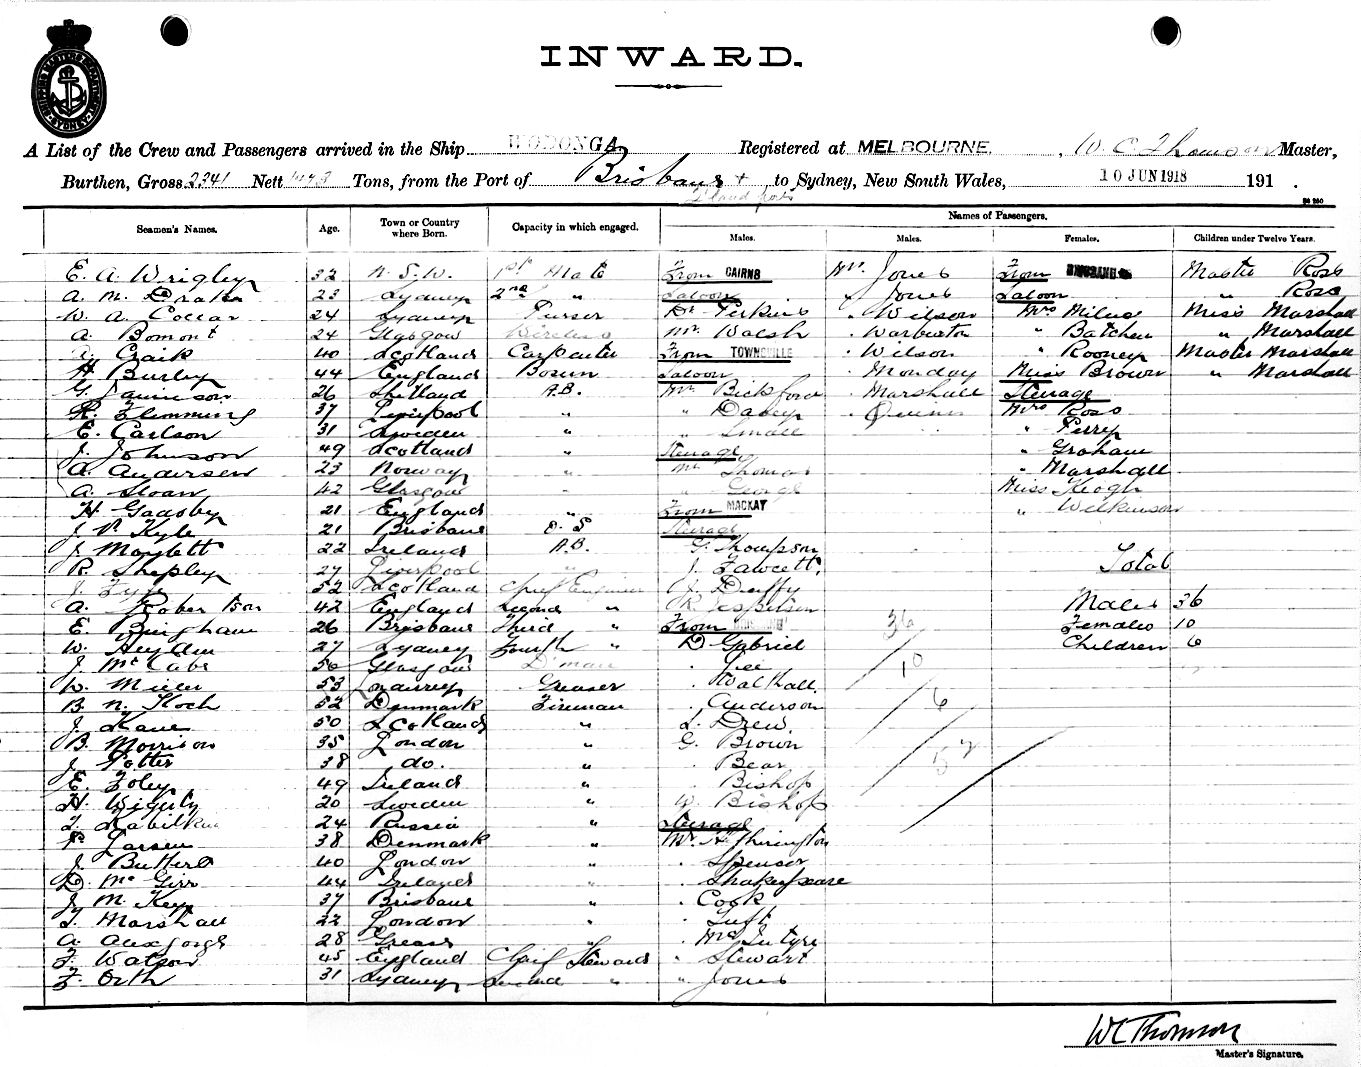 INWARD.
A List of the Crew and Passengers arrived in the Ship WODONGA Registered at MELBOURNE, W. C. Thomson Master,
Burthen, Gross 2341 Nett Tons, from the Port of Brisbane + to Sydney, New South Wales, 10 JUN 1918 191 .
Names of Passengers.
Seamen's Names. Age. Town or Country where Born. Capacity in which engaged. Males. Males. Females. Children under Twelve Years.
E. A. Wrigley 32 N. S. W. 1st Mate From CAIRNS Mr. Jones From Master Ross
A. M. Drake 23 Sydney 2nd " Saloon " Jones Saloon " Ross
W. A. Collar 24 Sydney Purser Mr Perkins " Wilson Mrs Milne Miss Marshall
A. Bomont 24 Glasgow Wireless Mr. Walsh " Warburton " Batchen " Marshall
A. Craik 40 Scotland Carpenter From TOWNSVILLE . Wilson " Rooney Master Marshall
H. Burley 44 England Bosun Saloon . Monday Miss Brown " Marshall
G. Jamieson 26 Shetland A.B. Mr. Bickford . Marshall Steerage
R. Flemming 37 Liverpool " " Davey . Quinn Mrs Ross
E. Carlson 31 Sweden " " Small " Perry
J. Johnson 49 Scotland " Steerage " Graham
A. Andersen 23 Norway " Mr Thomas " Marshall
A. Sloan 42 Glasgow " " George Miss Keogh
H. Gadsby 21 England " From MACKAY " Wilkinson
J. V. Kyle 21 Brisbane O. S Steerage
J. Maylett 22 Ireland A.B. G. Thompson
R. Shepley 27 Liverpool " J. Fawcett. Total
J. Fyfe 52 Scotland Chief Engineer J. Duffy
A. Robertson 42 England Second " R. Males 36
E. Bingham 26 Brisbane Third " From 36 Females 10
W. Heydon 27 Sydney Fourth " D. Gabriel Children 6
J. McCabe 56 Glasgow D'man . Gee 10
W. Miller 53 Greaser . Walthall.
B. N. Koch 52 Denmark Fireman . Anderson 6
J. Kane 50 Scotland " L. Drew
B. Morrison 35 London " G. Brown 52
J. Potter 38 do. " . Bear
E. Foley 49 Ireland " . Bishop
H. 20 Sweden " W. Bishop
24 Russia " Steerage
P. Larsen 38 Denmark " Mr. A. Thirington
J. 40 London " . Spenser
D. McGirr 44 Ireland " . Shakespeare
J. M. Key 37 Brisbane " . Cook
T. Marshall 22 London " . Tuft
A. 28 Greece " . McIntyre
F. Watson 45 England Chief Steward " Stewart
F. Orth 31 Sydney Second " " Jones
WCThomson
Master's Signature.